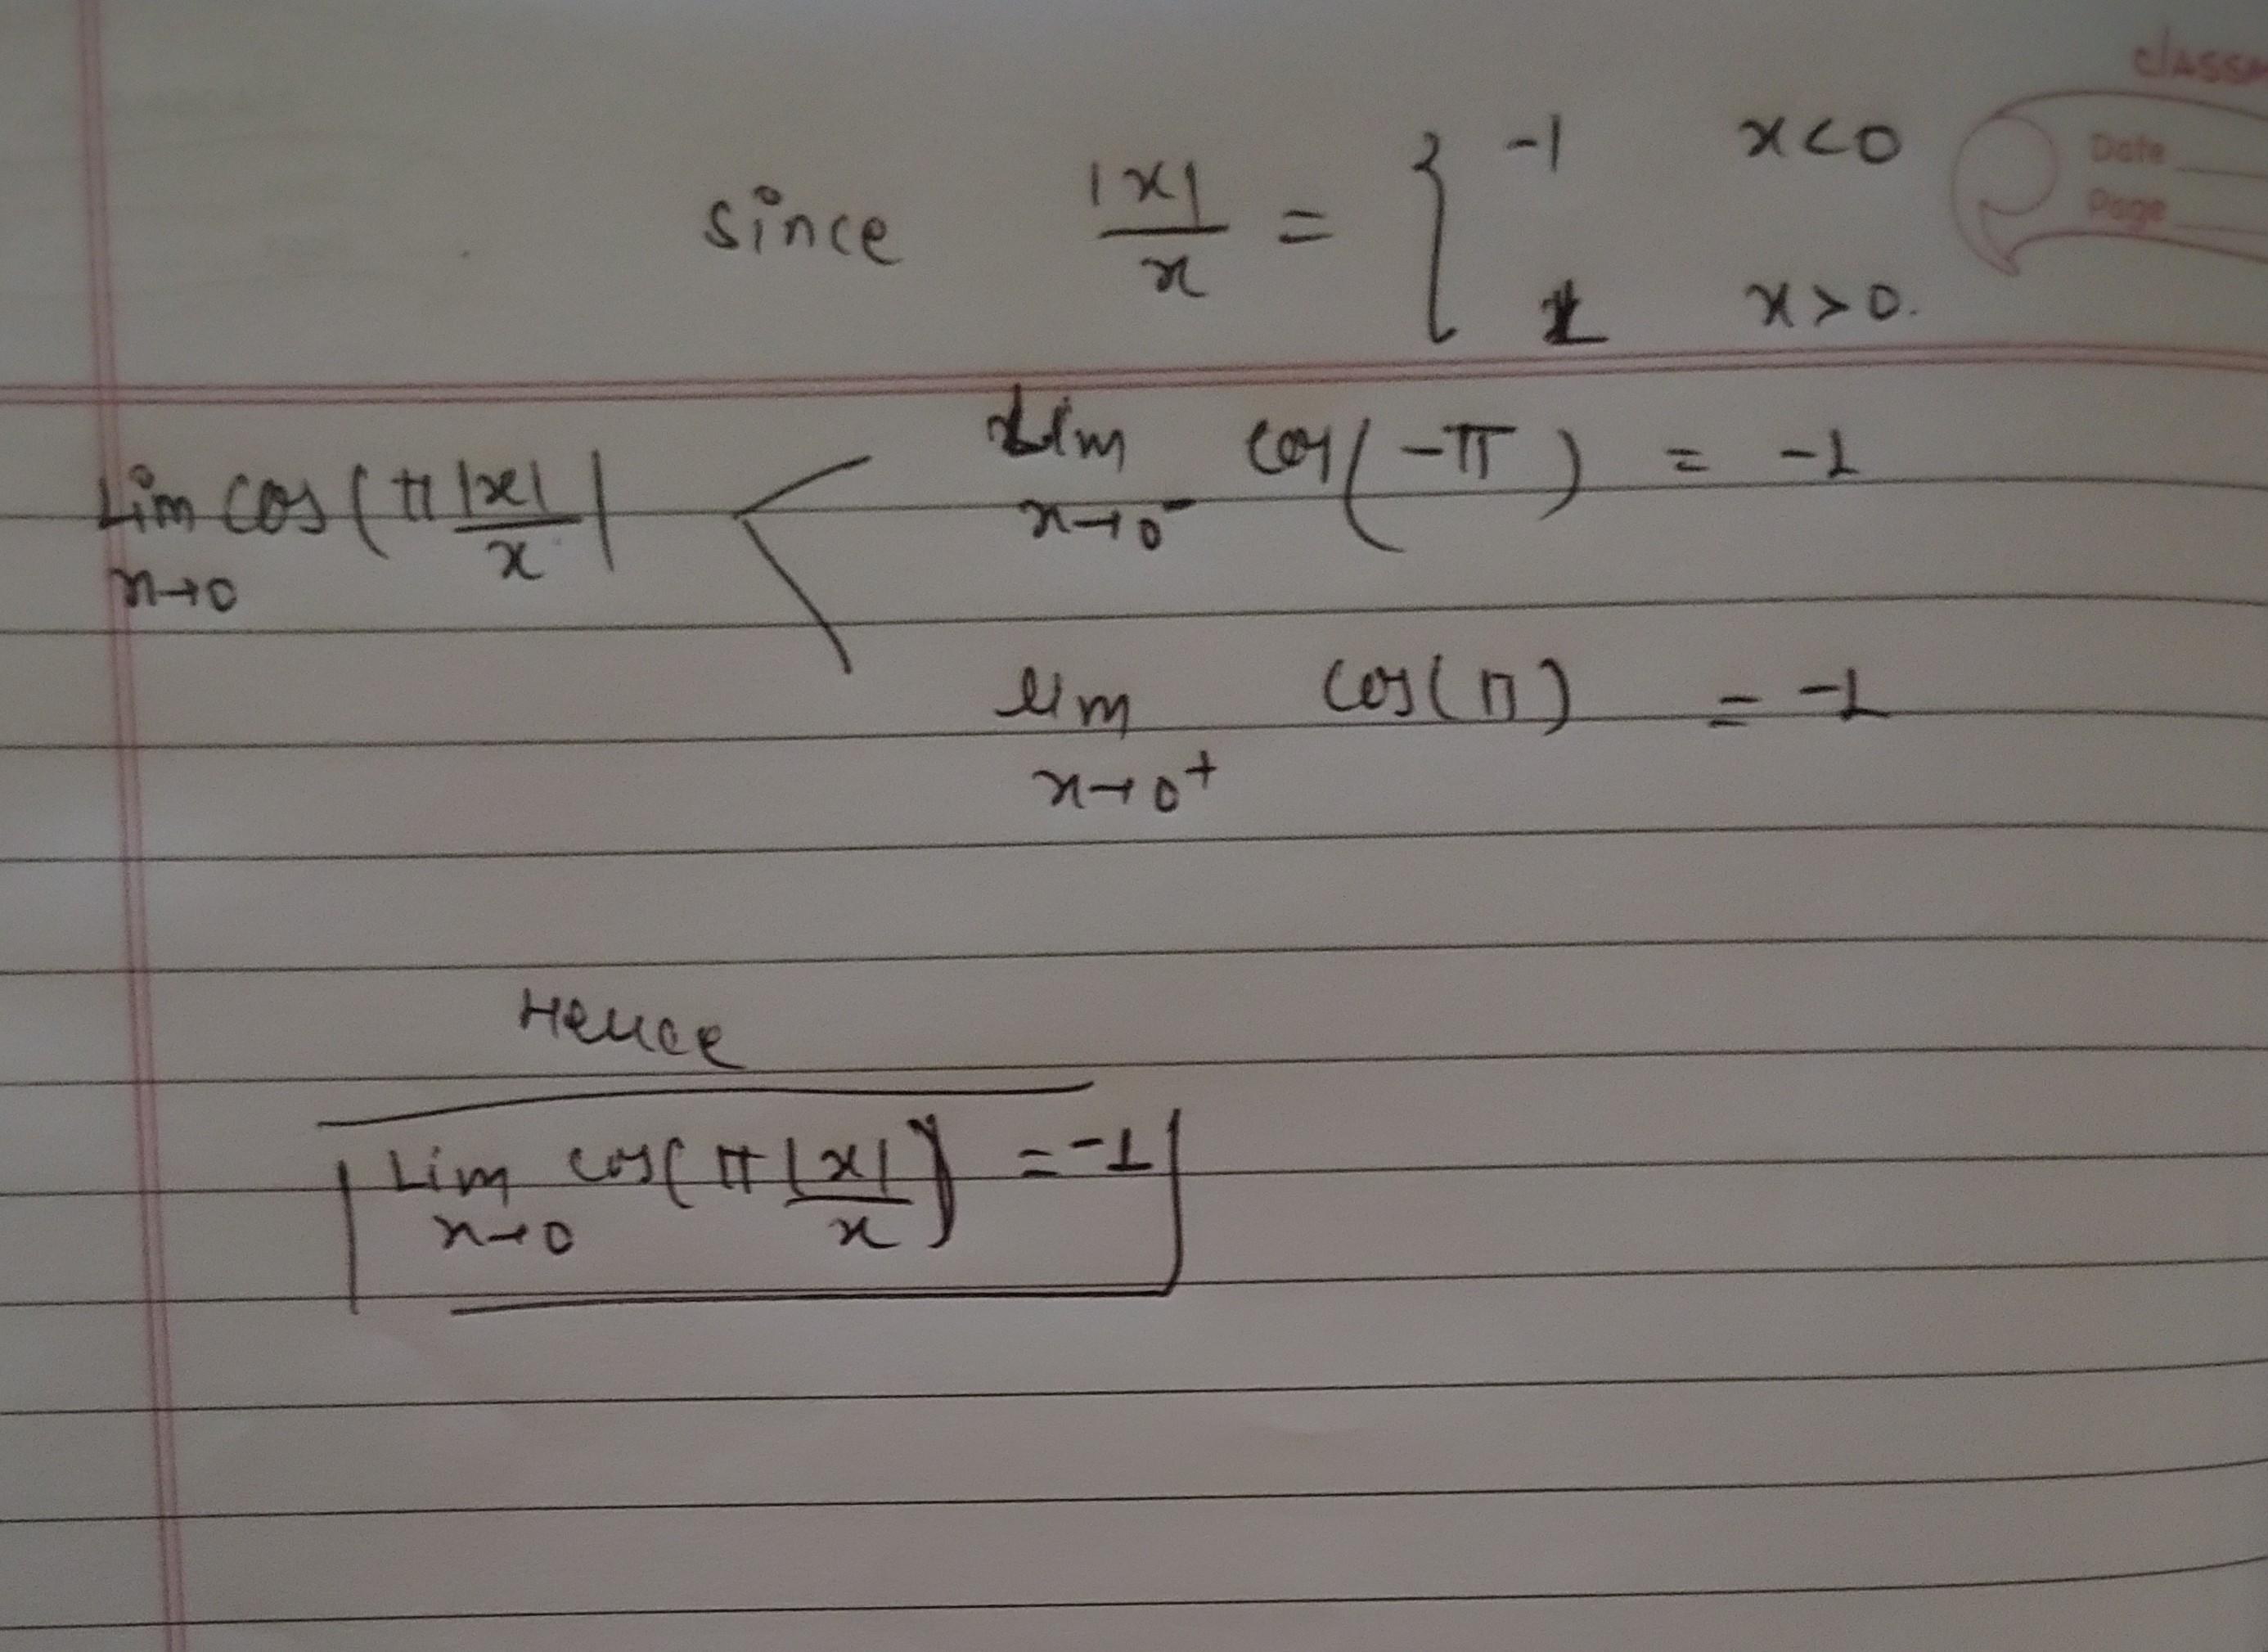 classm
Date
Page
since |x|/x = { -1 x<0
1 x>0.
Lim x→0 cos(π|x|/x)
Lim x→0⁻ cos(-π) = -1
lim x→0⁺ cos(π) = -1
Hence
Lim x→0 cos(π|x|/x) = -1